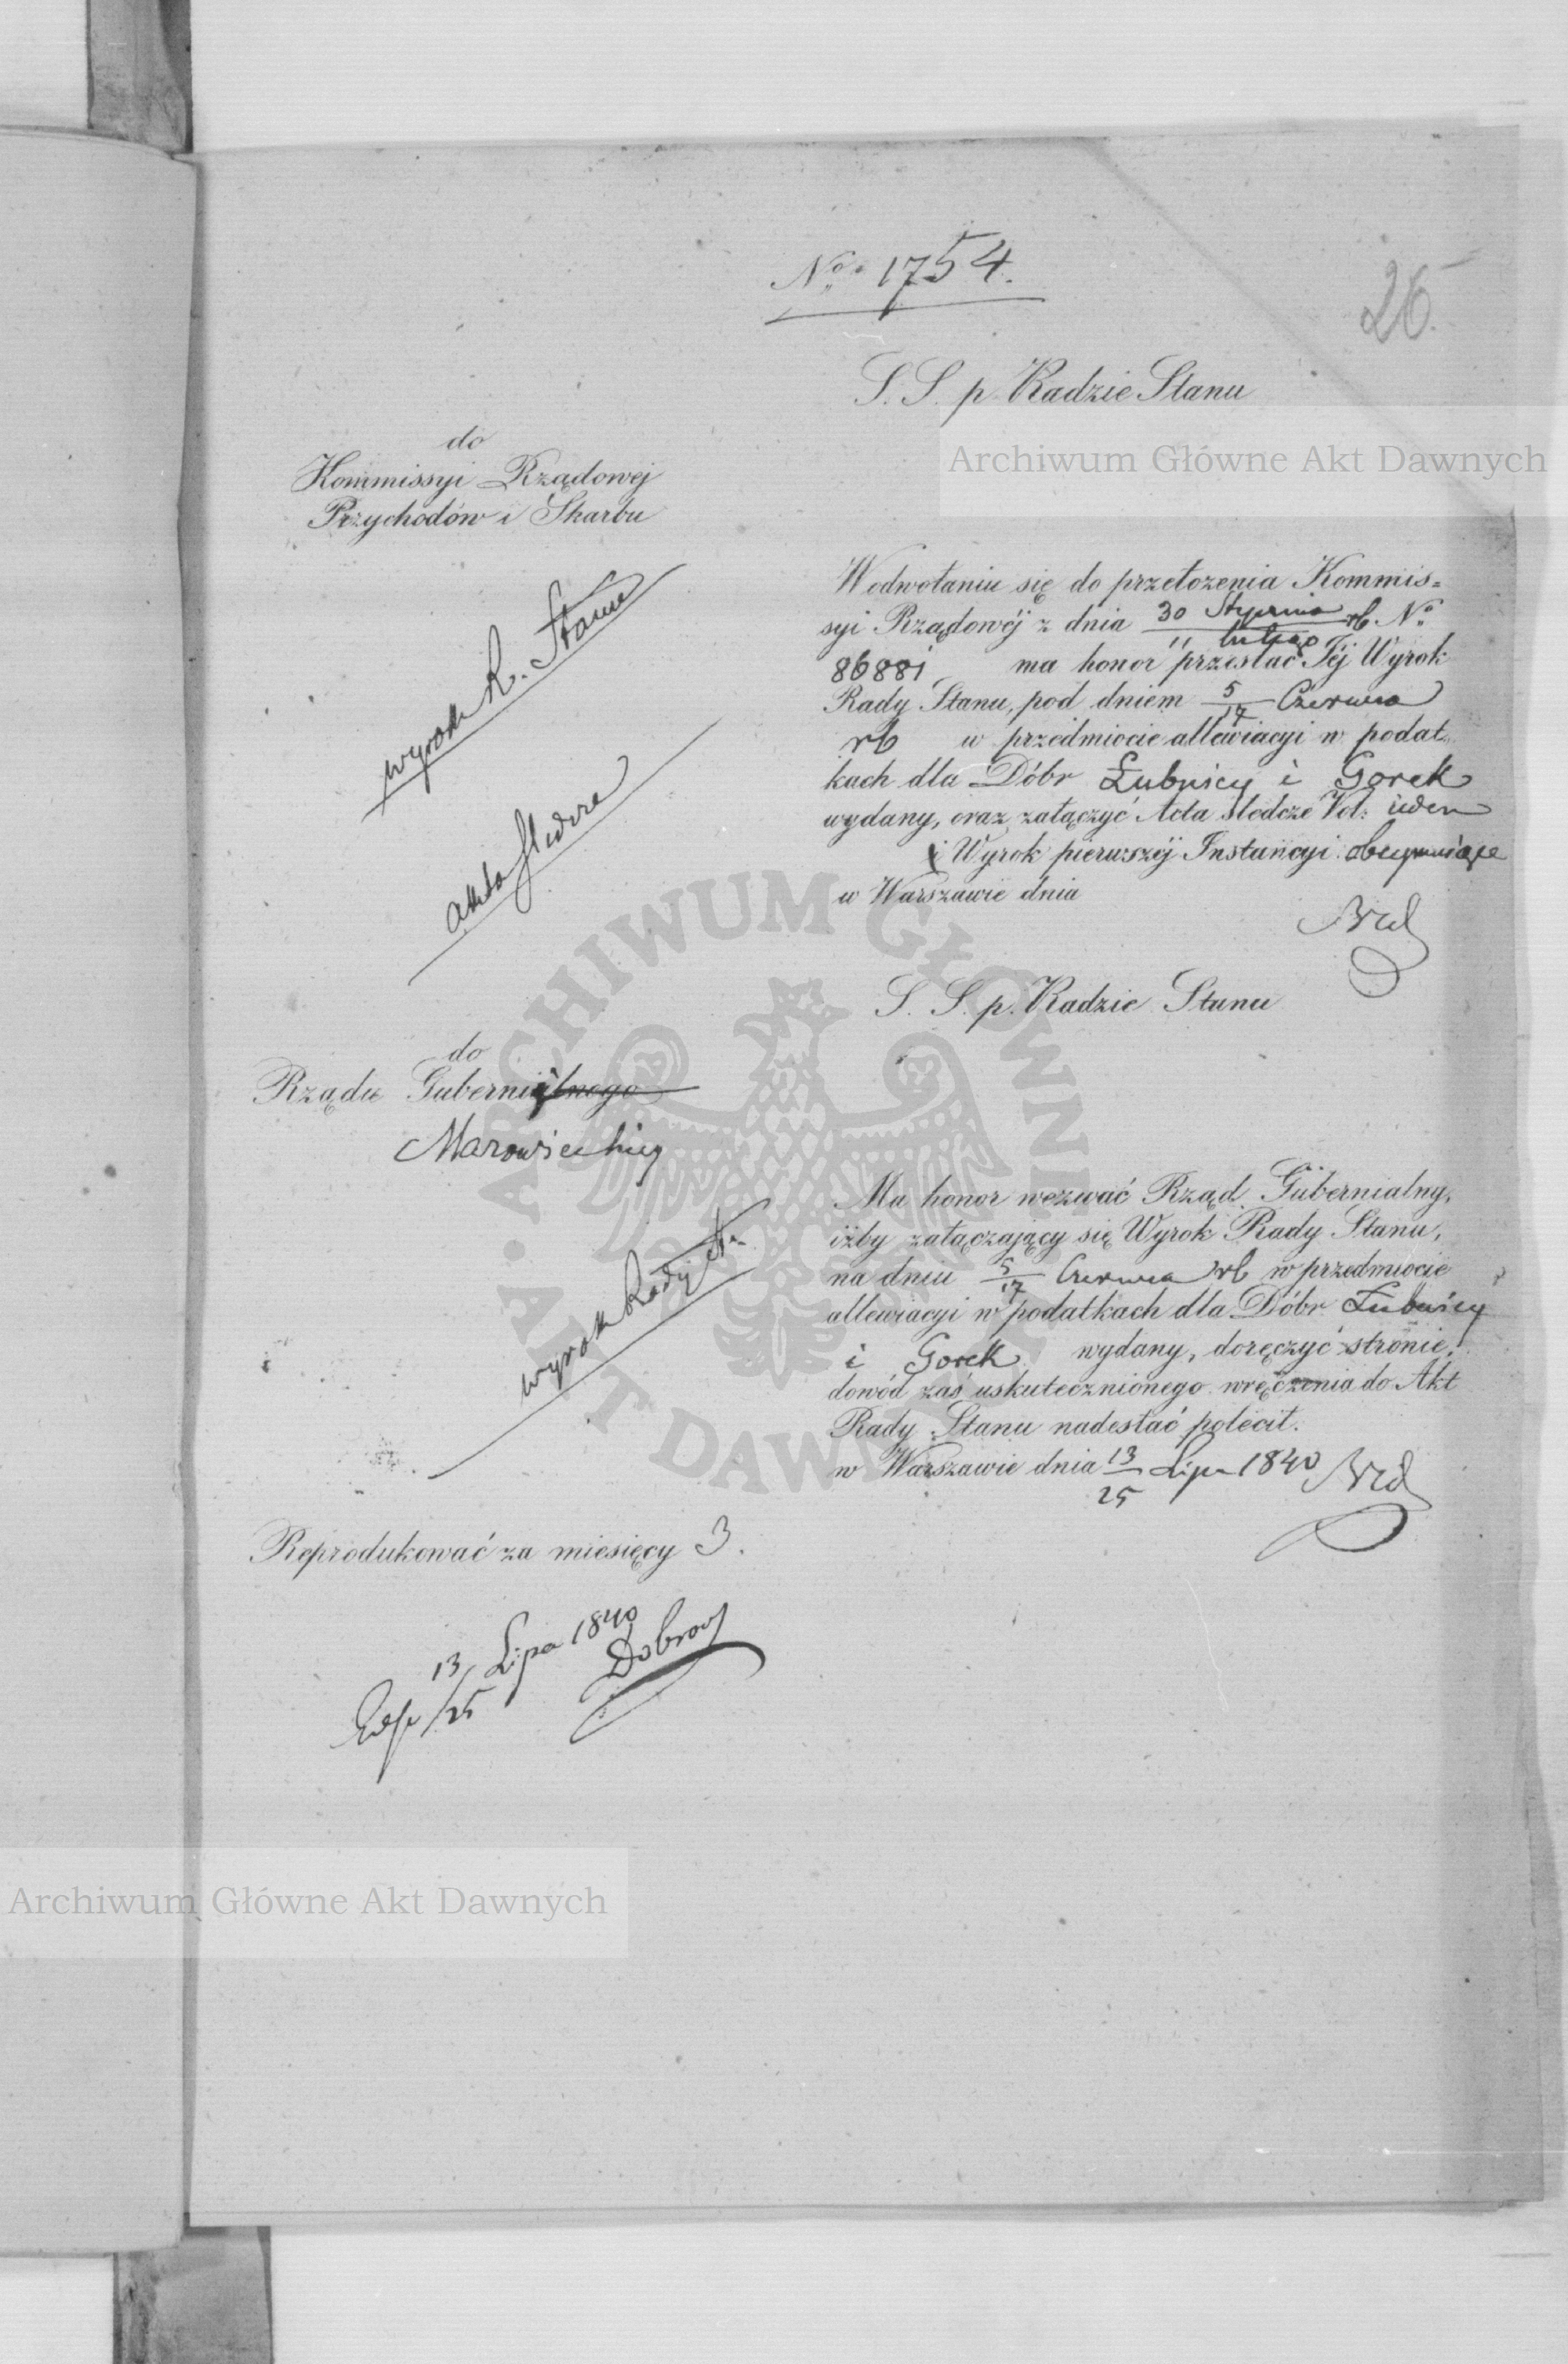 No 1754.
26.
S. S. p. Radzie Stanu
do
Kommissyi Rządowej
Przychodów i Skarbu
W odwołaniu się do przełożenia Kommis=
syi Rządowéj z dnia 30 Stycznia / 11 Lutego rb. No
86881 ma honor przesłać Jéj Wyrok
Rady Stanu, pod dniem 5/17 Czerwca
rb w przedmiocie allewiacyi w podat
kach dla Dóbr Łubnicy i Gorek
wydany, oraz załączyć Acta śledcze Vol: ieden
i Wyrok pierwszéj Instancyi obeymuiące
w Warszawie dnia
wyrok R. Stanu
akta śledcze
S. S. p. Radzie Stanu
do
Rządu Gubernialnego
Mazowieckieg
Ma honor wezwać Rząd Gubernialny,
iżby załączający się Wyrok Rady Stanu,
na dniu 5/17 Czerwca rb w przedmiocie
allewiacyi w podatkach dla Dóbr Łubnicy
i Gorek wydany, doręczyć stronie,
dowód zaś uskutecznionego wręczenia do Akt
Rady Stanu nadesłać polecił.
w Warszawie dnia 13/25 Lipca 1840
wyrok Rady St.
Reprodukować za miesięcy 3.
13/25 Lipca 1840
Archiwum Główne Akt Dawnych
ARCHIWUM GŁÓWNE
AKT DAWNYCH
Archiwum Główne Akt Dawnych